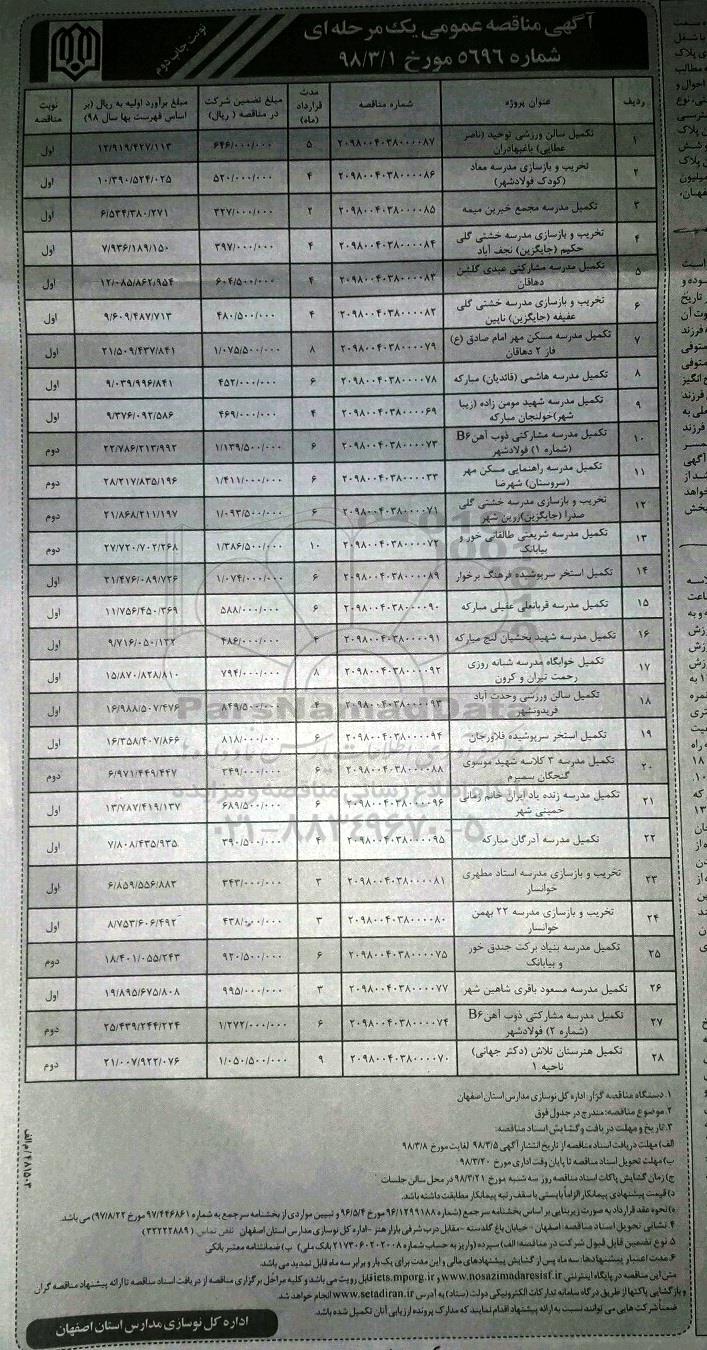 آگهی مناقصه عمومی یک مرحله ای
شماره ۵۶۹۶ مورخ ۹۸/۳/۱
نوبت چاپ دوم
ردیف عنوان پروژه شماره مناقصه مدت قرارداد (ماه) مبلغ تضمین شرکت در مناقصه (ریال) مبلغ برآورد اولیه به ریال (بر اساس فهرست بها سال ۹۸) نوبت مناقصه
۱ تکمیل سالن ورزشی توحید (ناصر عطایی) باغبهادران ۲۰۹۸۰۰۴۰۳۸۰۰۰۰۸۷ ۵ ۶۴۶/۰۰۰/۰۰۰ ۱۲/۹۱۹/۴۲۷/۱۱۳ اول
۲ تخریب و بازسازی مدرسه معاد (کودک فولادشهر) ۲۰۹۸۰۰۴۰۳۸۰۰۰۰۸۶ ۴ ۵۲۰/۰۰۰/۰۰۰ ۱۰/۳۹۰/۵۲۴/۰۲۵ اول
۳ تکمیل مدرسه مجمع خیرین میمه ۲۰۹۸۰۰۴۰۳۸۰۰۰۰۸۵ ۲ ۳۲۷/۰۰۰/۰۰۰ ۶/۵۳۴/۳۸۰/۲۷۱ اول
۴ تخریب و بازسازی مدرسه خشتی گلی حکیم (جایگزین) نجف آباد ۲۰۹۸۰۰۴۰۳۸۰۰۰۰۸۴ ۴ ۳۹۷/۰۰۰/۰۰۰ ۷/۹۳۶/۱۸۹/۱۵۰ اول
۵ تکمیل مدرسه مشارکتی عبدی گلشن دهاقان ۲۰۹۸۰۰۴۰۳۸۰۰۰۰۸۳ ۴ ۶۰۴/۵۰۰/۰۰۰ ۱۲/۰۸۵/۸۶۲/۹۵۴ اول
۶ تخریب و بازسازی مدرسه خشتی گلی عفیفه (جایگزین) نایین ۲۰۹۸۰۰۴۰۳۸۰۰۰۰۸۲ ۴ ۴۸۰/۵۰۰/۰۰۰ ۹/۶۰۹/۴۸۷/۷۱۳ اول
۷ تکمیل مدرسه مسکن مهر امام صادق (ع) فاز ۲ دهاقان ۲۰۹۸۰۰۴۰۳۸۰۰۰۰۷۹ ۸ ۱/۰۷۵/۵۰۰/۰۰۰ ۲۱/۵۰۹/۴۳۷/۸۴۱ اول
۸ تکمیل مدرسه هاشمی (قائدیان) مبارکه ۲۰۹۸۰۰۴۰۳۸۰۰۰۰۷۸ ۶ ۴۵۲/۰۰۰/۰۰۰ ۹/۰۳۹/۹۹۶/۸۴۱ اول
۹ تکمیل مدرسه شهید مومن زاده (زیبا شهر)خولنجان مبارکه ۲۰۹۸۰۰۴۰۳۸۰۰۰۰۶۹ ۴ ۴۶۹/۰۰۰/۰۰۰ ۹/۳۷۶/۰۹۲/۵۸۶ اول
۱۰ تکمیل مدرسه مشارکتی ذوب آهن B۶ (شماره ۱) فولادشهر ۲۰۹۸۰۰۴۰۳۸۰۰۰۰۷۳ ۶ ۱/۱۳۹/۵۰۰/۰۰۰ ۲۲/۷۸۶/۲۱۳/۹۹۲ دوم
۱۱ تکمیل مدرسه راهنمایی مسکن مهر (سروستان) شهرضا ۲۰۹۸۰۰۴۰۳۸۰۰۰۰۳۳ ۶ ۱/۴۱۱/۰۰۰/۰۰۰ ۲۸/۲۱۷/۸۳۵/۱۹۶ دوم
۱۲ تخریب و بازسازی مدرسه خشتی گلی صدرا (جایگزین)زرین شهر ۲۰۹۸۰۰۴۰۳۸۰۰۰۰۷۱ ۶ ۱/۰۹۳/۵۰۰/۰۰۰ ۲۱/۸۶۸/۲۱۱/۱۹۷ دوم
۱۳ تکمیل مدرسه شریعتی طالقانی خور و بیابانک ۲۰۹۸۰۰۴۰۳۸۰۰۰۰۷۲ ۱۰ ۱/۳۸۶/۵۰۰/۰۰۰ ۲۷/۷۲۰/۷۰۲/۲۶۸ دوم
۱۴ تکمیل استخر سرپوشیده فرهنگ برخوار ۲۰۹۸۰۰۴۰۳۸۰۰۰۰۸۹ ۶ ۱/۰۷۴/۰۰۰/۰۰۰ ۲۱/۴۷۶/۰۸۹/۷۲۶ اول
۱۵ تکمیل مدرسه قربانعلی عقیلی مبارکه ۲۰۹۸۰۰۴۰۳۸۰۰۰۰۹۰ ۶ ۵۸۸/۰۰۰/۰۰۰ ۱۱/۷۵۶/۴۵۰/۳۶۹ اول
۱۶ تکمیل مدرسه شهید بخشیان لنج مبارکه ۲۰۹۸۰۰۴۰۳۸۰۰۰۰۹۱ ۴ ۴۸۶/۰۰۰/۰۰۰ ۹/۷۱۶/۰۵۰/۱۳۲ اول
۱۷ تکمیل خوابگاه مدرسه شبانه روزی رحمت تیران و کرون ۲۰۹۸۰۰۴۰۳۸۰۰۰۰۹۲ ۸ ۷۹۴/۰۰۰/۰۰۰ ۱۵/۸۷۰/۸۲۸/۸۱۰ اول
۱۸ تکمیل سالن ورزشی وحدت آباد فریدونشهر ۲۰۹۸۰۰۴۰۳۸۰۰۰۰۹۳ ۴ ۸۴۹/۵۰۰/۰۰۰ ۱۶/۹۸۸/۵۰۷/۴۷۶ اول
۱۹ تکمیل استخر سرپوشیده فلاورجان ۲۰۹۸۰۰۴۰۳۸۰۰۰۰۹۴ ۶ ۸۱۸/۰۰۰/۰۰۰ ۱۶/۳۵۸/۴۰۷/۸۶۶ اول
۲۰ تکمیل مدرسه ۳ کلاسه شهید موسوی گنجگان سمیرم ۲۰۹۸۰۰۴۰۳۸۰۰۰۰۸۸ ۶ ۳۴۹/۰۰۰/۰۰۰ ۶/۹۷۱/۴۴۹/۴۴۷ دوم
۲۱ تکمیل مدرسه زنده یاد ایران خانم زمانی خمینی شهر ۲۰۹۸۰۰۴۰۳۸۰۰۰۰۹۶ ۶ ۶۸۹/۵۰۰/۰۰۰ ۱۳/۷۸۷/۴۱۹/۱۳۷ اول
۲۲ تکمیل مدرسه آدرگان مبارکه ۲۰۹۸۰۰۴۰۳۸۰۰۰۰۹۵ ۴ ۳۹۰/۵۰۰/۰۰۰ ۷/۸۰۸/۴۳۵/۹۳۵ اول
۲۳ تخریب و بازسازی مدرسه استاد مطهری خوانسار ۲۰۹۸۰۰۴۰۳۸۰۰۰۰۸۱ ۳ ۳۴۳/۰۰۰/۰۰۰ ۶/۸۵۹/۵۵۶/۸۸۳ اول
۲۴ تخریب و بازسازی مدرسه ۲۲ بهمن خوانسار ۲۰۹۸۰۰۴۰۳۸۰۰۰۰۸۰ ۳ ۴۳۸/۰۰۰/۰۰۰ ۸/۷۵۳/۶۰۶/۴۹۲ اول
۲۵ تکمیل مدرسه بنیاد برکت جندق خور و بیابانک ۲۰۹۸۰۰۴۰۳۸۰۰۰۰۷۵ ۶ ۹۲۰/۵۰۰/۰۰۰ ۱۸/۴۰۱/۰۵۵/۲۴۳ دوم
۲۶ تکمیل مدرسه مسعود باقری شاهین شهر ۲۰۹۸۰۰۴۰۳۸۰۰۰۰۷۷ ۳ ۹۹۵/۰۰۰/۰۰۰ ۱۹/۸۹۵/۶۷۵/۸۰۸ اول
۲۷ تکمیل مدرسه مشارکتی ذوب آهن B۶ (شماره ۲) فولادشهر ۲۰۹۸۰۰۴۰۳۸۰۰۰۰۷۴ ۶ ۱/۲۷۲/۰۰۰/۰۰۰ ۲۵/۴۳۹/۲۴۴/۲۲۴ دوم
۲۸ تکمیل هنرستان تلاش (دکتر جهانی) ناحیه ۱ ۲۰۹۸۰۰۴۰۳۸۰۰۰۰۷۰ ۹ ۱/۰۵۰/۵۰۰/۰۰۰ ۲۱/۰۰۷/۹۲۲/۰۷۶ دوم
ParsNamadData
۰۲۱-۸۸۳۴۹۶۷۰-۵
۱. دستگاه مناقصه گزار: اداره کل نوسازی مدارس استان اصفهان
۲. موضوع مناقصه: مندرج در جدول فوق
۳. تاریخ و مهلت دریافت و گشایش اسناد مناقصه:
الف) مهلت دریافت اسناد مناقصه از تاریخ انتشار آگهی ۹۸/۳/۵ لغایت مورخ ۹۸/۳/۸
ب) مهلت تحویل اسناد مناقصه تا پایان وقت اداری مورخ ۹۸/۳/۲۰
ج) زمان گشایش پاکات اسناد مناقصه روز سه شنبه مورخ ۹۸/۳/۲۱ در محل سالن جلسات
د) قیمت پیشنهادی پیمانکار الزاماً بایستی با سقف رتبه پیمانکار مطابقت داشته باشد.
ه) نحوه عقد قرارداد به صورت زیربنایی بر اساس بخشنامه سرجمع (شماره ۹۶/۱۲۹۹۱۸۸ مورخ ۹۶/۵/۴ و تبیین مواردی از بخشنامه سرجمع به شماره ۹۷/۴۴۶۸۶۱ مورخ ۹۷/۸/۲۲) می باشد.
۴. نشانی تحویل اسناد مناقصه: اصفهان - خیابان باغ گلدسته - مقابل درب شرقی بازار هنر - اداره کل نوسازی مدارس استان اصفهان تلفن تماس: (۳۲۲۲۲۸۸۹)
۵. نوع تضمین قابل قبول شرکت در مناقصه: الف) سپرده (واریز به حساب شماره ۲۱۷۳۰۶۰۲۰۲۰۰۸ بانک ملی) ب) ضمانتنامه معتبر بانکی
۶. مدت اعتبار پیشنهادها: سه ماه پس از گشایش پیشنهادهای مالی و این مدت برای یک بار و برابر سه ماه قابل تمدید می باشد.
متن این مناقصه در پایگاه اینترنتی www.nosazimadaresisf.ir و iets.mporg.ir قابل رویت می باشد و کلیه مراحل برگزاری مناقصه از دریافت اسناد مناقصه تا ارائه پیشنهاد مناقصه گران
و بازگشایی پاکتها از طریق درگاه سامانه تدارکات الکترونیکی دولت (ستاد) به آدرس www.setadiran.ir انجام خواهد شد.
ضمناً شرکت هایی می توانند نسبت به ارائه پیشنهاد اقدام نمایند که مدارک پرونده ارزیابی آنان تکمیل شده باشد.
اداره کل نوسازی مدارس استان اصفهان